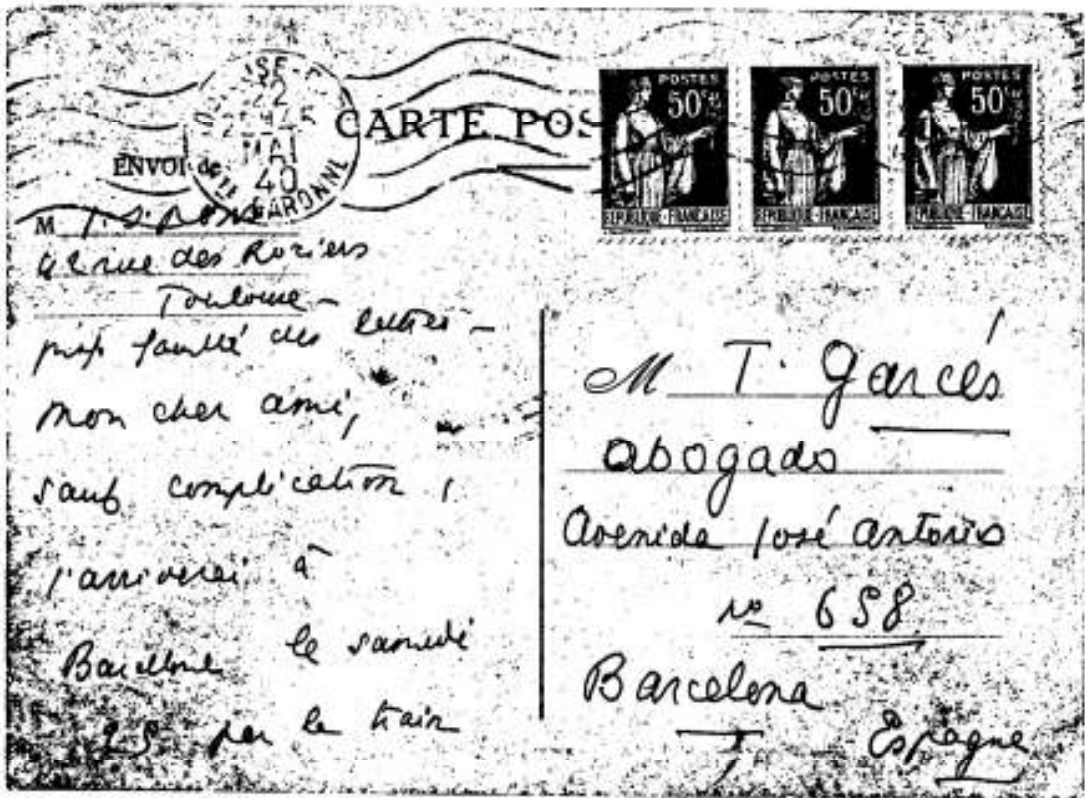 22
MAI
40
GARONNE
CARTE POS
ENVOI de
POSTES
50c
REPUBLIQUE-FRANCAISE
POSTES
50c
REPUBLIQUE-FRANCAISE
POSTES
50c
REPUBLIQUE-FRANCAISE
M J. S. PONS
42 rue des Roziers
Toulouse -
prof faculté des lettres -
mon cher ami,
sauf complication,
j'arriverai à
Barcelone le samedi
25 par le train
M T. Garcés
abogado
Avenida José Antonio
no 658
Barcelona
Espagne